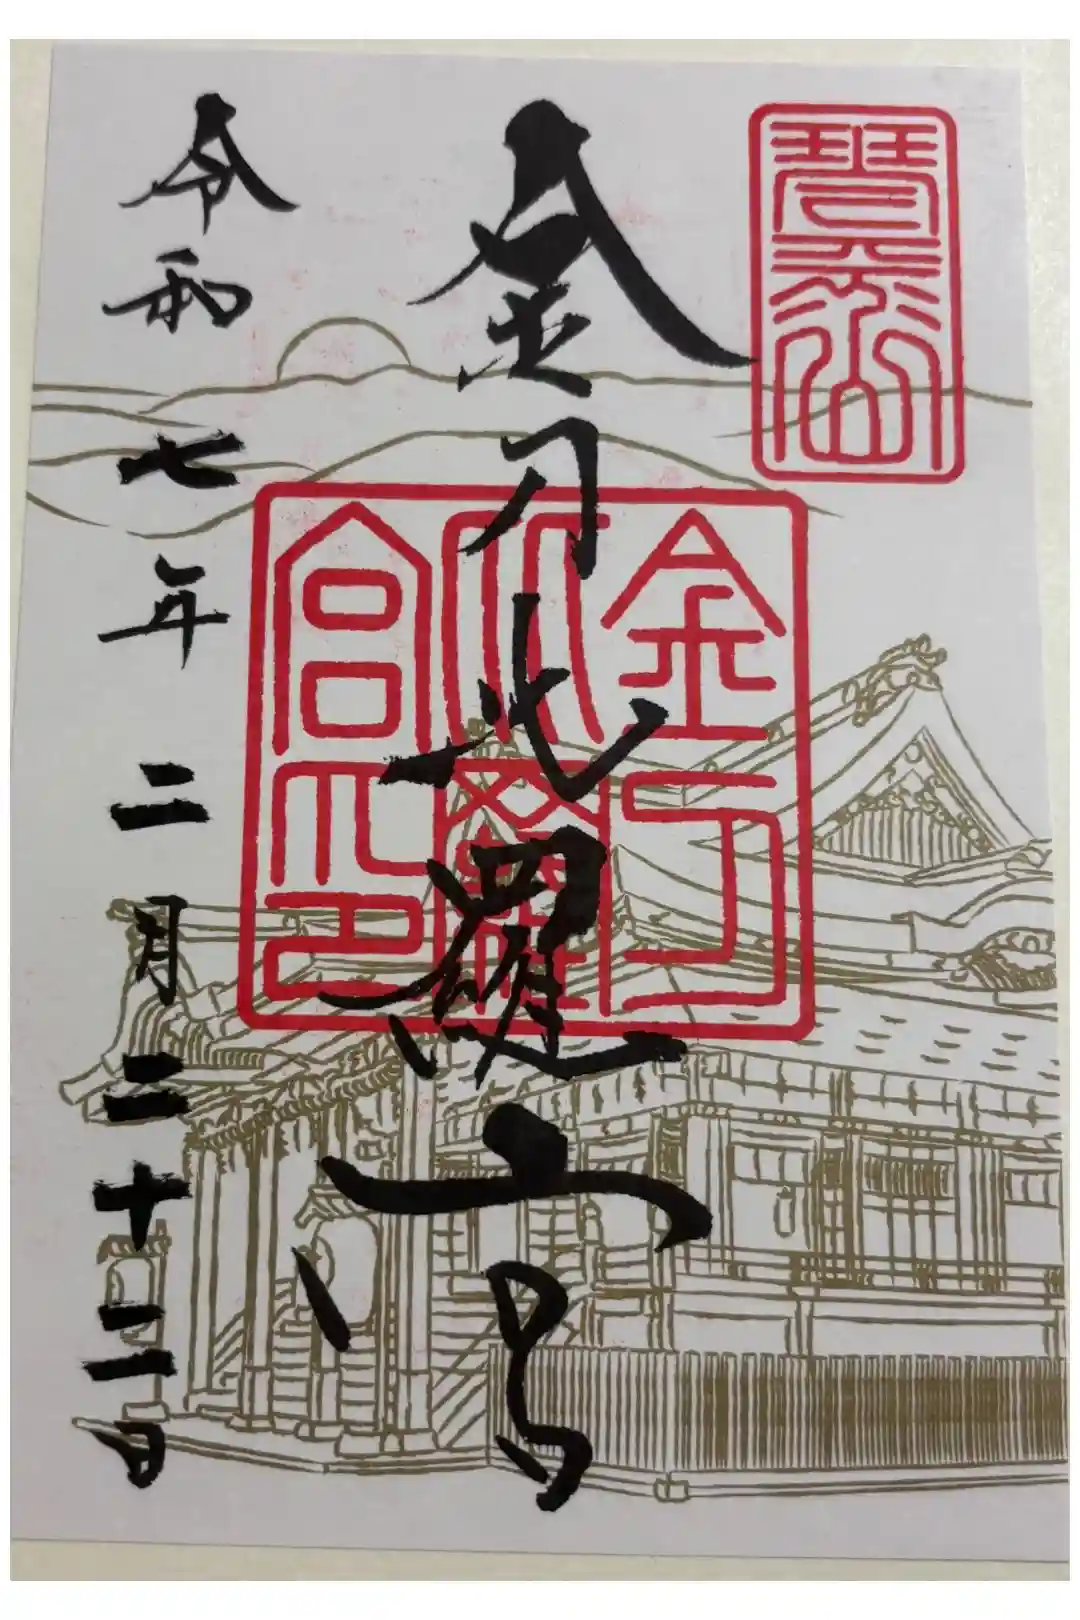 琴平山
金刀比羅宮
金刀比羅宮印
令和七年二月二十二日